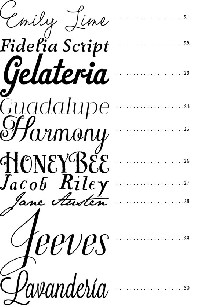 Emily Lime
Fidelia Script
Gelateria
Guadalupe
Harmony
HONEYBEE
Jacob Riley
Jane Austen
Jeeves
Lavanderia